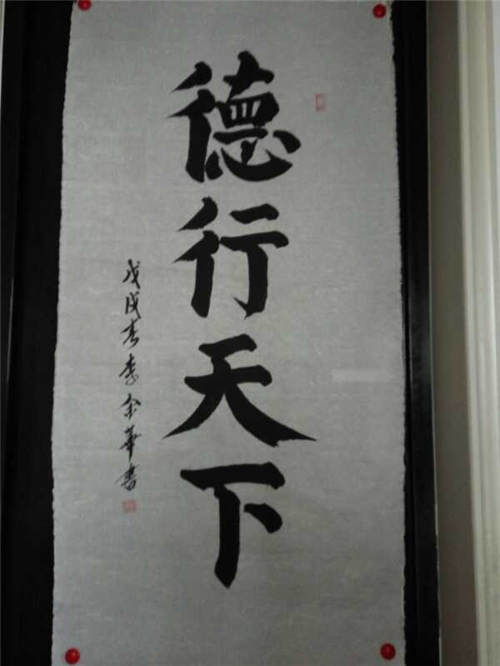 德行天下
戊戌春李金華書